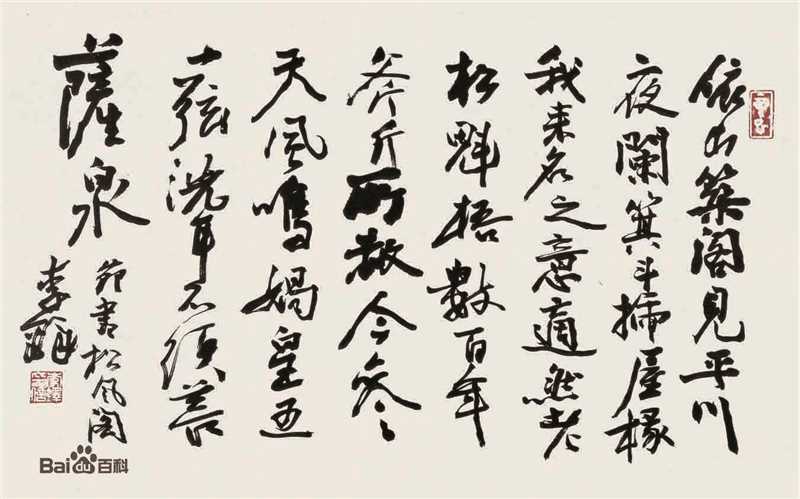 依山築閣見平川
夜闌箕斗插屋椽
我来名之意適然老
松魁梧數百年
斧斤所赦今參
天風鳴媧皇五
十弦洗耳不須菩
薩泉
节書松風阁
李
Bai百科